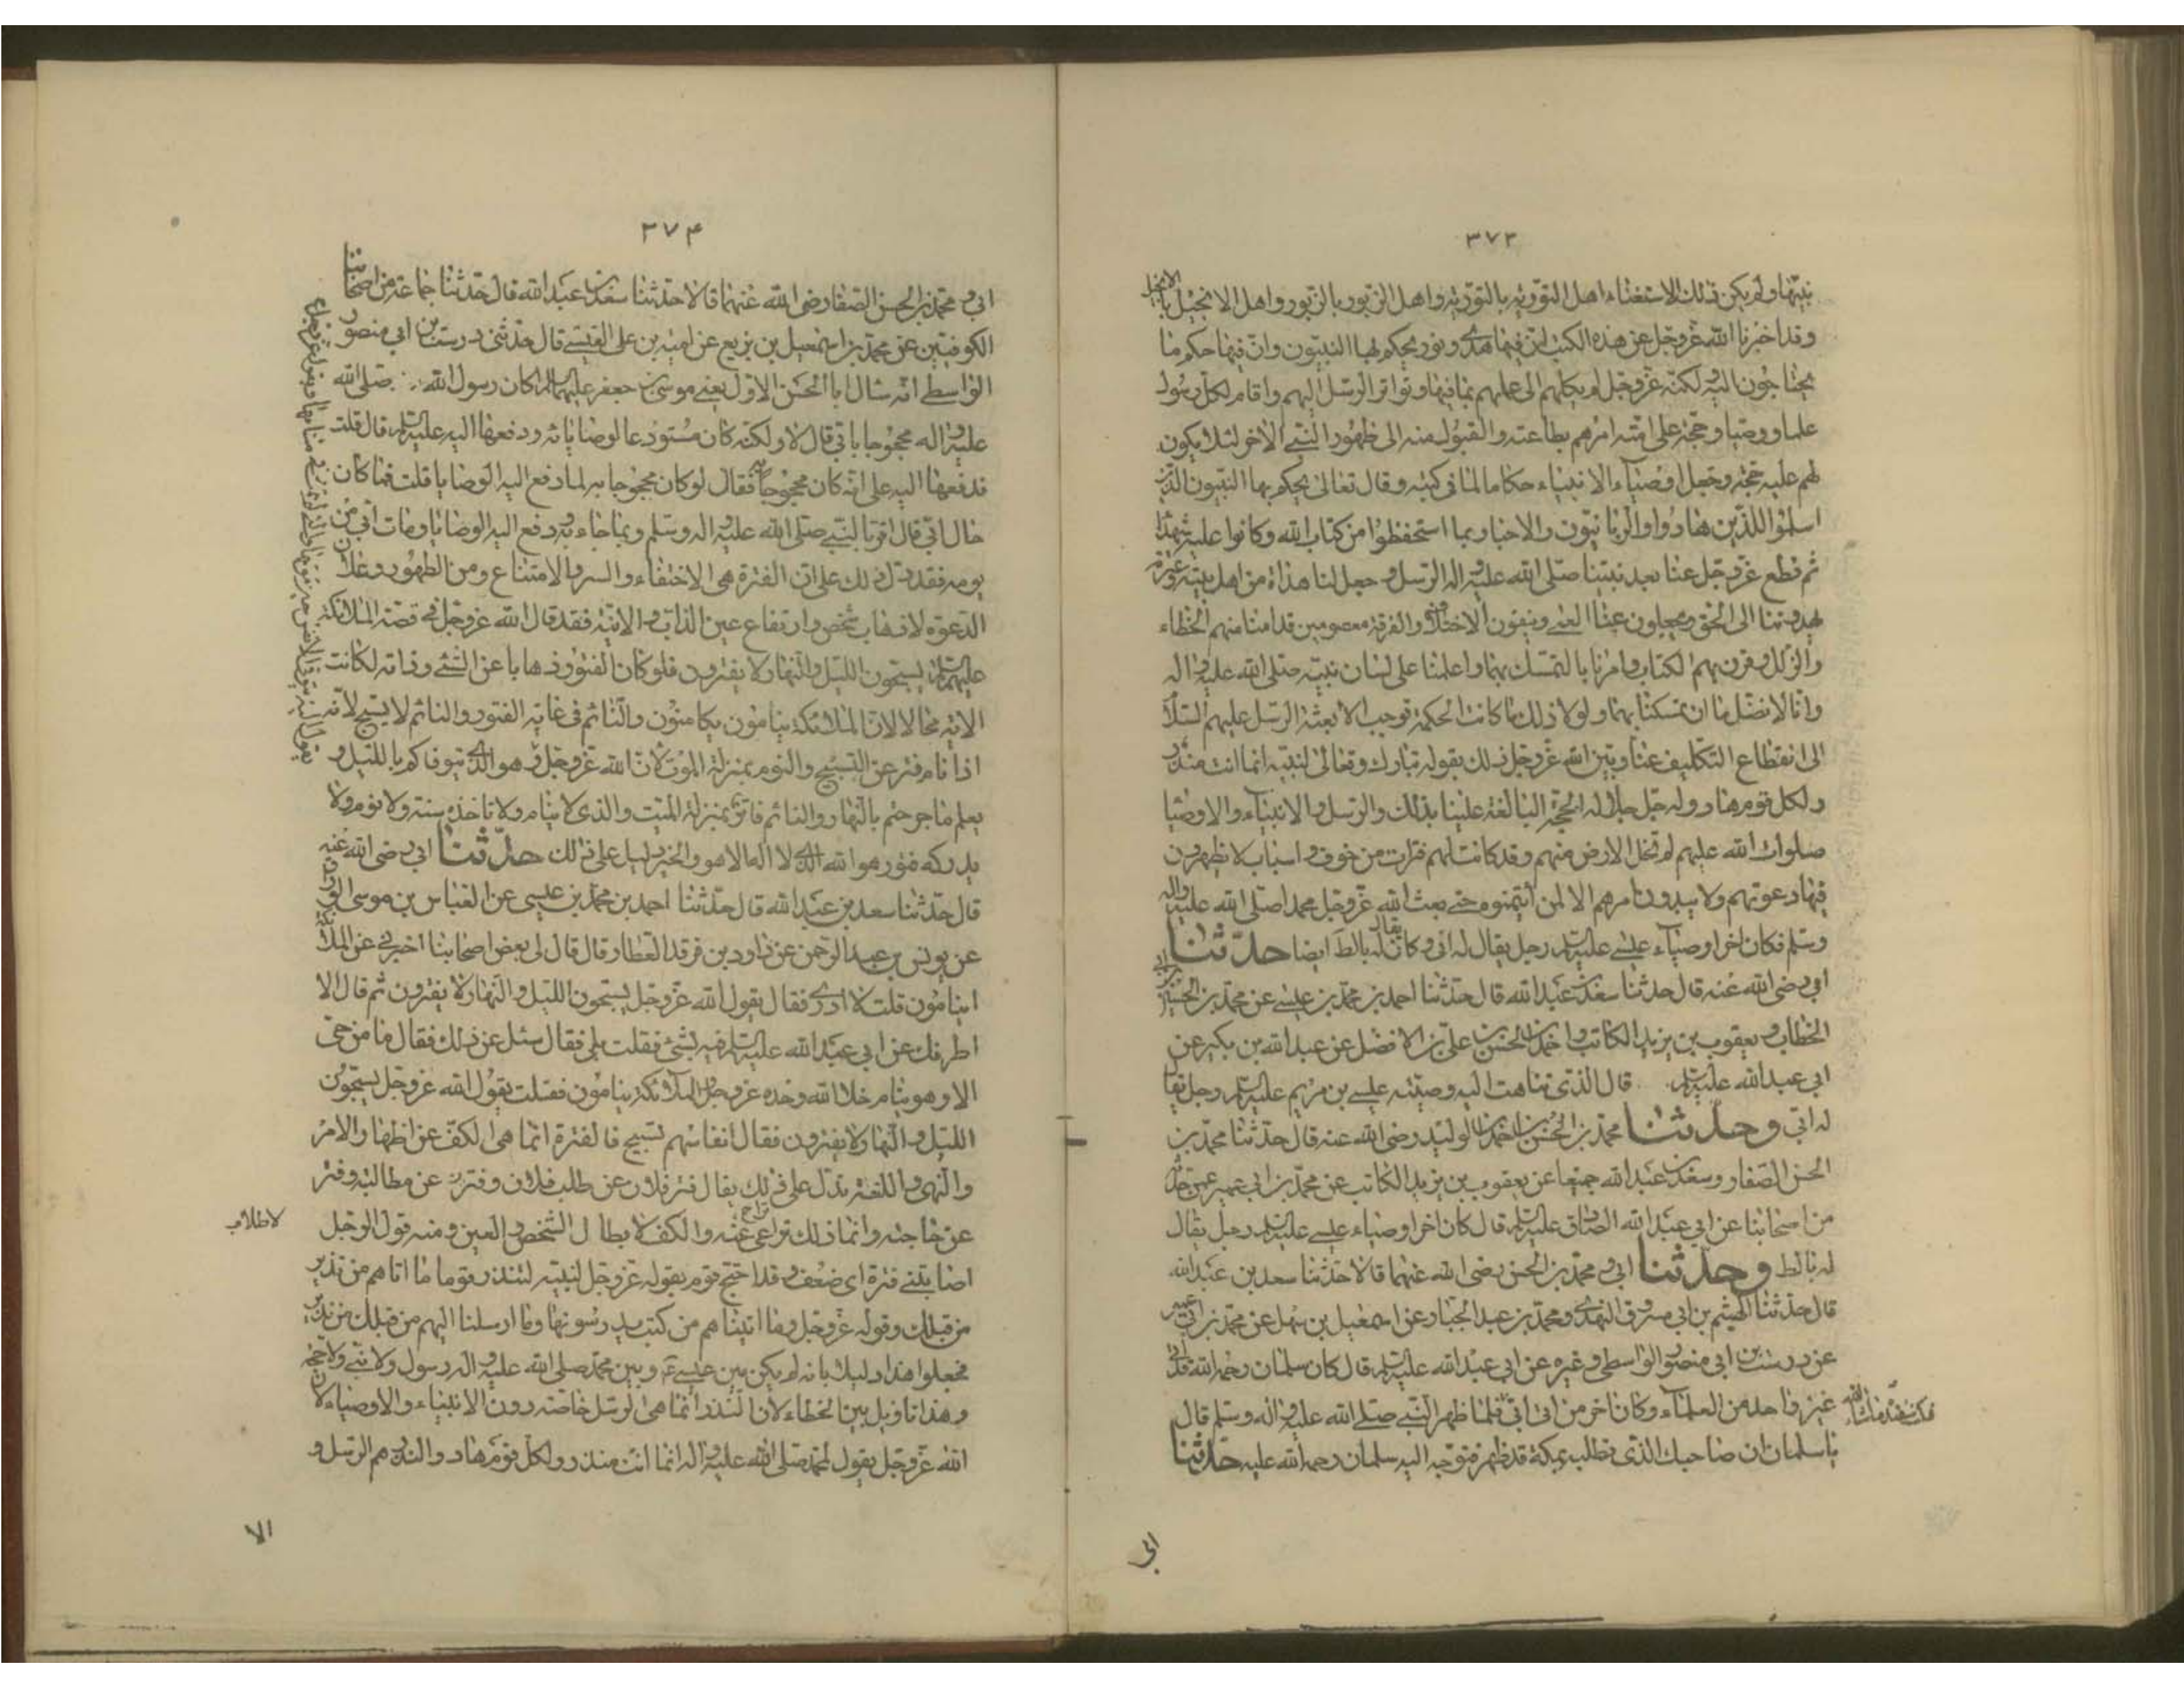 ٣٧٣
نبيّها ولم يكن ذلك الاستغناء اهل التوريه بالتوريه واهل الزبور بالزبور واهل الانجيل بالانجيل
وقد اخبرنا الله عزوجل عن هذه الكتب ان فيها هدى ونور يحكم بها النبيون وان فيها حكم ما
يحتاجون اليه لكنه عزوجل لم يكلهم الى علمهم بما فيها وتواتر الرسل اليهم واقام لكل رسول
علما ووصيا وحجة على امته امرهم بطاعته والقبول منه الى ظهور النبي الاخر لئلا يكون
لهم عليه حجة وجعل اوصياء الانبياء حكاما لما في كتبه وقال تعالى يحكم بها النبيون الذين
اسلموا للذين هادوا والربانيون والاحبار بما استحفظوا من كتاب الله وكانوا عليه شهداء
ثم قطع عزوجل عنا بعد نبينا صلى الله عليه واله الرسل وجعل لنا هداة من اهل بيته وعترته
يهدوننا الى الحق ويجلون عنا العمى وينفون الاختلاف والفرقة معصومين قد امنا منهم الخطاء
والزلل وقرن بهم الكتاب وامرنا بالتمسك بهما واعلمنا على لسان نبيه صلى الله عليه واله
وانا لا نضل ما ان تمسكنا بهما ولولا ذلك ما كانت الحكمة توجب الا بعثة الرسل عليهم السلام
الى انقطاع التكليف عنا وبين الله عزوجل ذلك بقوله تبارك وتعالى لنبيه انما انت منذر
ولكل قوم هاد وله جل جلاله الحجة البالغة علينا بذلك والرسل والانبياء والاوصيا
صلوات الله عليهم لم تخل الارض منهم وقد كانت لهم فترات من خوف واسباب لا يظهرون
فيها دعوتهم ولا يبدون امرهم الا لمن أئتمنوه حتى بعث الله عزوجل محمدا صلى الله عليه واله
وسلم فكان اخر اوصياء عيسى عليه السلم رجل يقال له ابي وكان يقال له بالط ايضا حدثنا
ابي رضى الله عنه قال حدثنا سعد بن عبد الله قال حدثنا احمد بن محمد بن عيسى عن محمد بن الحسين بن ابي
الخطاب ويعقوب بن يزيد الكاتب واحمد بن الحسن بن علي بن الافضل عن عبد الله بن بكير عن
ابي عبد الله عليه السلم قال الذى تناهت اليه وصيته عيسى بن مريم عليه السلم رجل يقال
له ابي وحدثنا محمد بن الحسن بن احمد بن الوليد رضى الله عنه قال حدثنا محمد بن
الحسن الصفار وسعد بن عبد الله جميعا عن يعقوب بن يزيد الكاتب عن محمد بن ابي عمير عمن حدثه
من اصحابنا عن ابي عبد الله الصادق عليه السلم قال كان اخر اوصياء عيسى عليه السلم رجل يقال
له بالط وحدثنا ابي ومحمد بن الحسن رضى الله عنهما قالا حدثنا سعد بن عبد الله
قال حدثنا الهيثم بن ابي مسروق النهدى ومحمد بن عبد الجبار عن اسمعيل بن سهل عن محمد بن ابي عمير
عن درست بن ابي منصور الواسطى وغيره عن ابي عبد الله عليه السلم قال كان سلمان رحمه الله قد اتى
غير واحد من العلماء وكان اخر من اتى ابي فلما ظهر النبي صلى الله عليه واله وسلم قال
يا سلمان ان صاحبك الذى تطلب بمكة قد ظهر فتوجه اليه سلمان رحمه الله عليه حدثنا
ابي
٣٧۴
ابي ومحمد بن الحسن الصفار رضى الله عنهما قالا حدثنا سعد بن عبد الله قال حدثنا جماعة من اصحابنا
الكوفيين عن محمد بن اسمعيل بن بزيع عن امية بن على القيسى قال حدثنى درست بن ابي منصور
الواسطى انه سال ابا الحسن الاول يعني موسى بن جعفر عليهما السلم اكان رسول الله صلى الله
عليه واله محجوجا بابي قال لا ولكنه كان مستودعا لوصاياه ودفعها اليه عليه السلم قال قلت
فدفعها اليه على انه كان محجوجا به فقال لو كان محجوجا به لما دفع اليه الوصايا قلت فما كان
حال ابي قال اقر بالنبي صلى الله عليه اله وسلم وبما جاء به ودفع اليه الوصايا ومات ابي من
يومه فقد دل ذلك على ان الفترة هي الاختفاء والسر والامتناع ومن الظهور وعلان
الدعوة لا ذهاب شخص وارتفاع عين الذات والانية فقد قال الله عزوجل في قصة الملائكة
عليهم السلم يسبحون الليل والنهار لا يفترون فلو كان الفتور ذهابا عن الشئ وذاته لكانت
الاية محالا لان الملائكة ينامون والنائم في غاية الفتور والنائم لا يسبح لانه
اذا نام فتر عن التسبيح والنوم بمنزلة الموت لان الله عزوجل وهو الذى يتوفاكم بالليل و
يعلم ما جرحتم بالنهار والنائم فاتر بمنزلة الميت والذى لا ينام ولا تاخذه سنة ولا نوم ولا
يدركه فتور هو الله الذى لا اله الا هو والخبر دليل على ذلك حدثنا ابي رضى الله عنه
قال حدثنا سعد بن عبد الله قال حدثنا احمد بن محمد بن عيسى عن العباس بن موسى الوراق
عن يونس بن عبد الرحمن عن داود بن فرقد العطار قال قال لى بعض اصحابنا اخبرنى عن الملائكة
اينامون قلت لا ادرى فقال يقول الله عزوجل يسبحون الليل والنهار لا يفترون ثم قال الا
اطرفك عن ابي عبد الله عليه السلم فيه بشئ فقلت بلى فقال سئل عن ذلك فقال ما من حى
الا وهو ينام خلا الله وحده عزوجل والملائكة ينامون فقلت يقول الله عزوجل يسبحون
الليل والنهار لا يفترون فقال انفاسهم تسبيح فالفترة انما هى الكف عن اظهار الامر
والنهى واللغة تدل على ذلك يقال فتر فلان عن طلب فلان وفتر عن مطالبته وفتر
عن حاجته وانما ذلك تراخى عنه والكف لا بطال الشخص والعين ومنه قول الرجل
لا بطلان
اصابتنى فترة اى ضعف وقد احتج قوم بقوله عزوجل لنبيه لتنذر قوما ما اتاهم من نذير
من قبلك وقوله عزوجل وما اتيناهم من كتب يدرسونها وما ارسلنا اليهم من قبلك من نذير
فجعلوا هذا دليلا بانه لم يكن بين عيسى ع وبين محمد صلى الله عليه اله رسول ولا نبي ولا حجة
وهذا تاويل بين الخطاء لان النذر انما هى الرسل خاصة دون الانبياء والاوصياء لان
الله عزوجل يقول لمحمد صلى الله عليه واله انما انت منذر ولكل قوم هاد والنذر هم الرسل و
الا